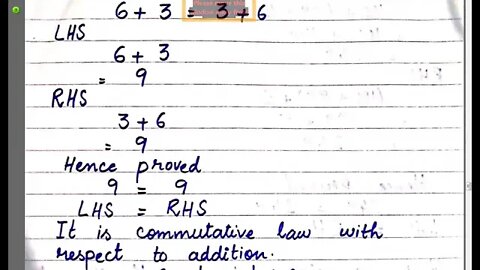 6 + 3 = 3 + 6
LHS
6 + 3
= 9
RHS
3 + 6
= 9
Hence proved
9 = 9
LHS = RHS
It is commutative law with
respect to addition.